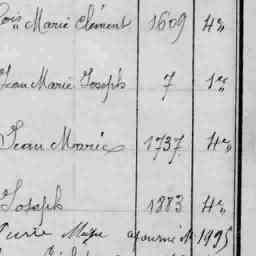 Marie Clément 1609 4e
Jean Marie Joseph 7 1er
Jean Marie 1737 4e
Joseph 1883 4e
ajourné 1995